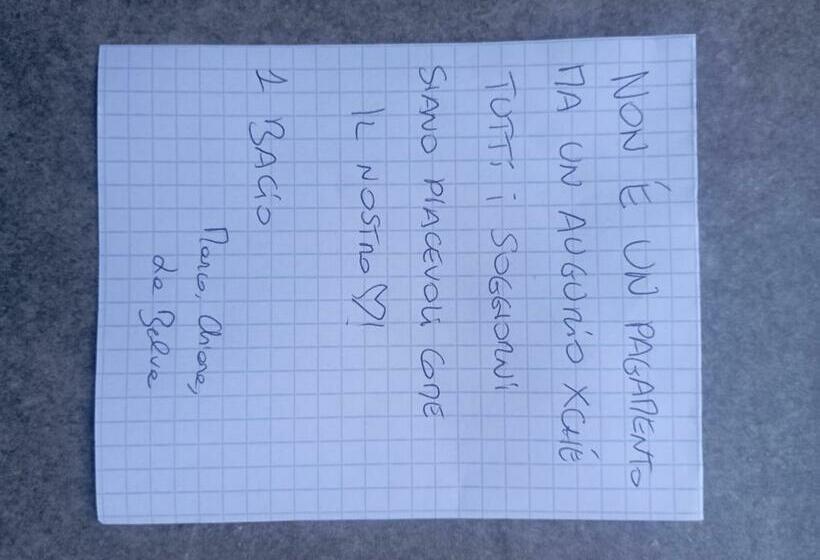 NON É UN PAGAMENTO
MA UN AUGURIO XCHÉ
TUTTI i SOGGIORNI
SIANO PIACEVOLI COME
IL NOSTRO ♡!
1 BACIO
Marco, Chiara,
La Belva